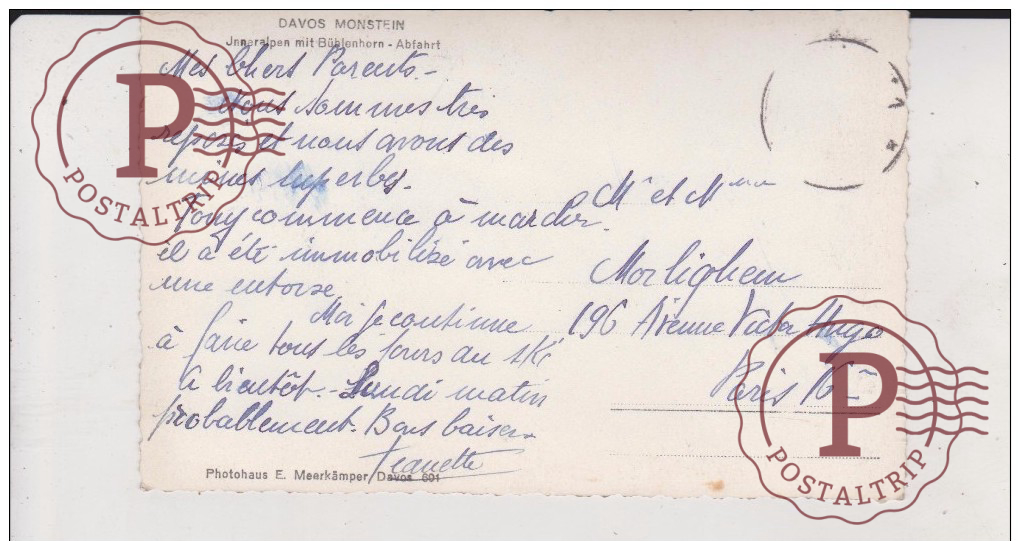 DAVOS MONSTEIN
Jnneralpen mit Bühlenhorn - Abfahrt
Mes Chers Parents -
Nous sommes très
reposés et nous avons des
mines superbes.
Tony commence à marcher.
il a été immobilisé avec
une entorse
Moi je continue
à faire tous les jours du ski
A bientôt - Lundi matin
probablement. Bons baisers
Jeanette
Photohaus E. Meerkämper, Davos 601
Mr et Mme
Morlighem
196 Avenue Victor Hugo
Paris 16e
P
POSTALTRIP
P
POSTALTRIP